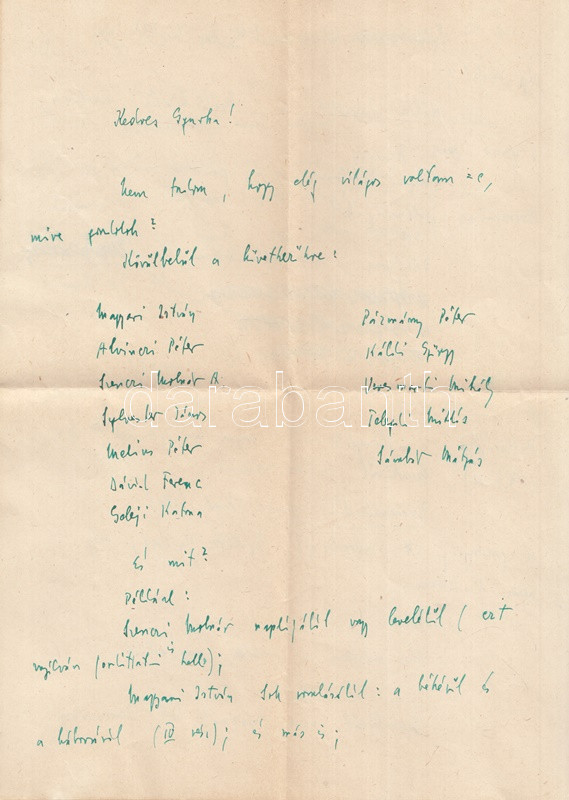 Kedves Gyurka!
Nem tudom, hogy elég világos voltam-e,
mire gondolok?
Körülbelül a következőkre:
Magyari István
Alvinczi Péter
Szenczi Molnár A
Sylvester János
Melius Péter
Dávid Ferenc
Geleji Katona
Pázmány Péter
Káldi György
Veresmarti Mihály
Telegdi Miklós
Sámbár Mátyás
darabanth
És mit?
Például:
Szenczi Molnár naplójából vagy leveléből (ezt
nyilván fordíttatni is kellene);
Magyari István Sok romlásából: a békéről és
a háborúról (IV rész); és más is;